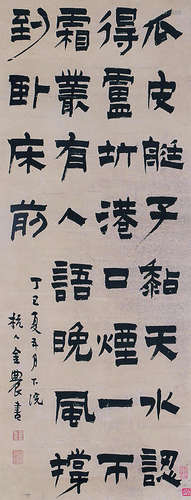 瓜皮艇子黏天水認
得盧圻港口煙一兩
霜叢有人語晚風撐
到臥床前
丁巳夏五月下浣
杭人金農書